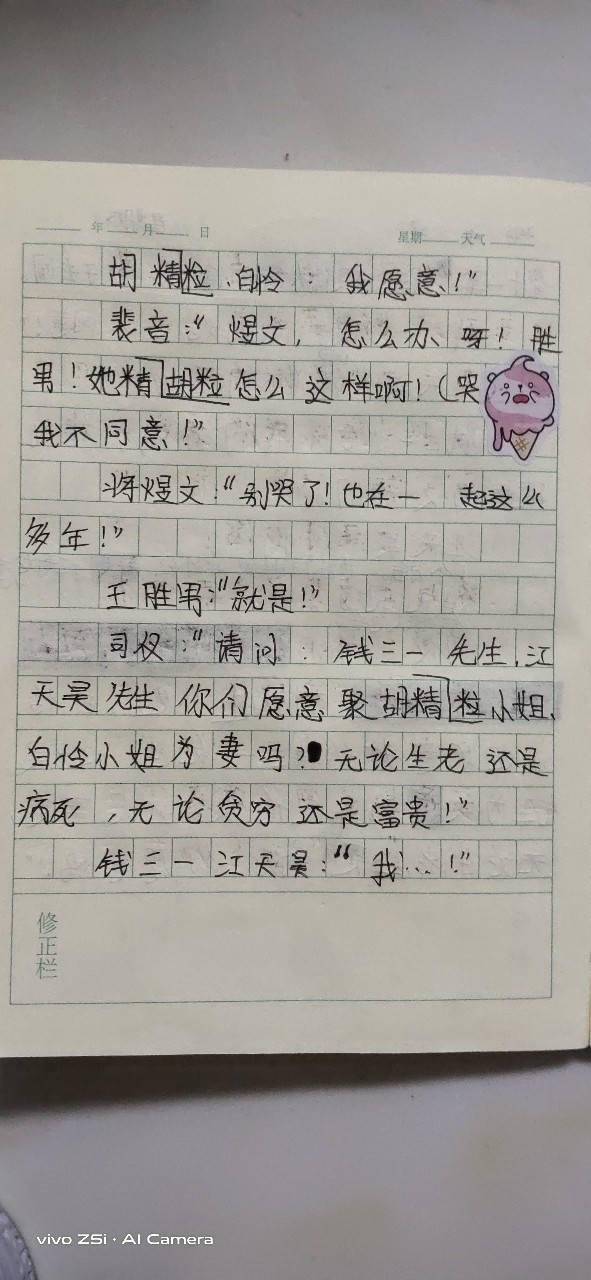 年 月 日 星期 天气
胡精粒、白怜：我愿意！”
裴音：“煜文，怎么办呀！胜
男！她精胡粒怎么这样啊！（哭
我不同意！”
将煜文：“别哭了！也在一起这么
多年！”
王胜男：“就是！”
司仪：“请问：钱三一先生，江
天昊先生你们愿意聚胡精粒小姐、
白怜小姐为妻吗？无论生老还是
病死，无论贫穷还是富贵！”
钱三一江天昊：“我…！”
修正栏
vivo Z5i · AI Camera